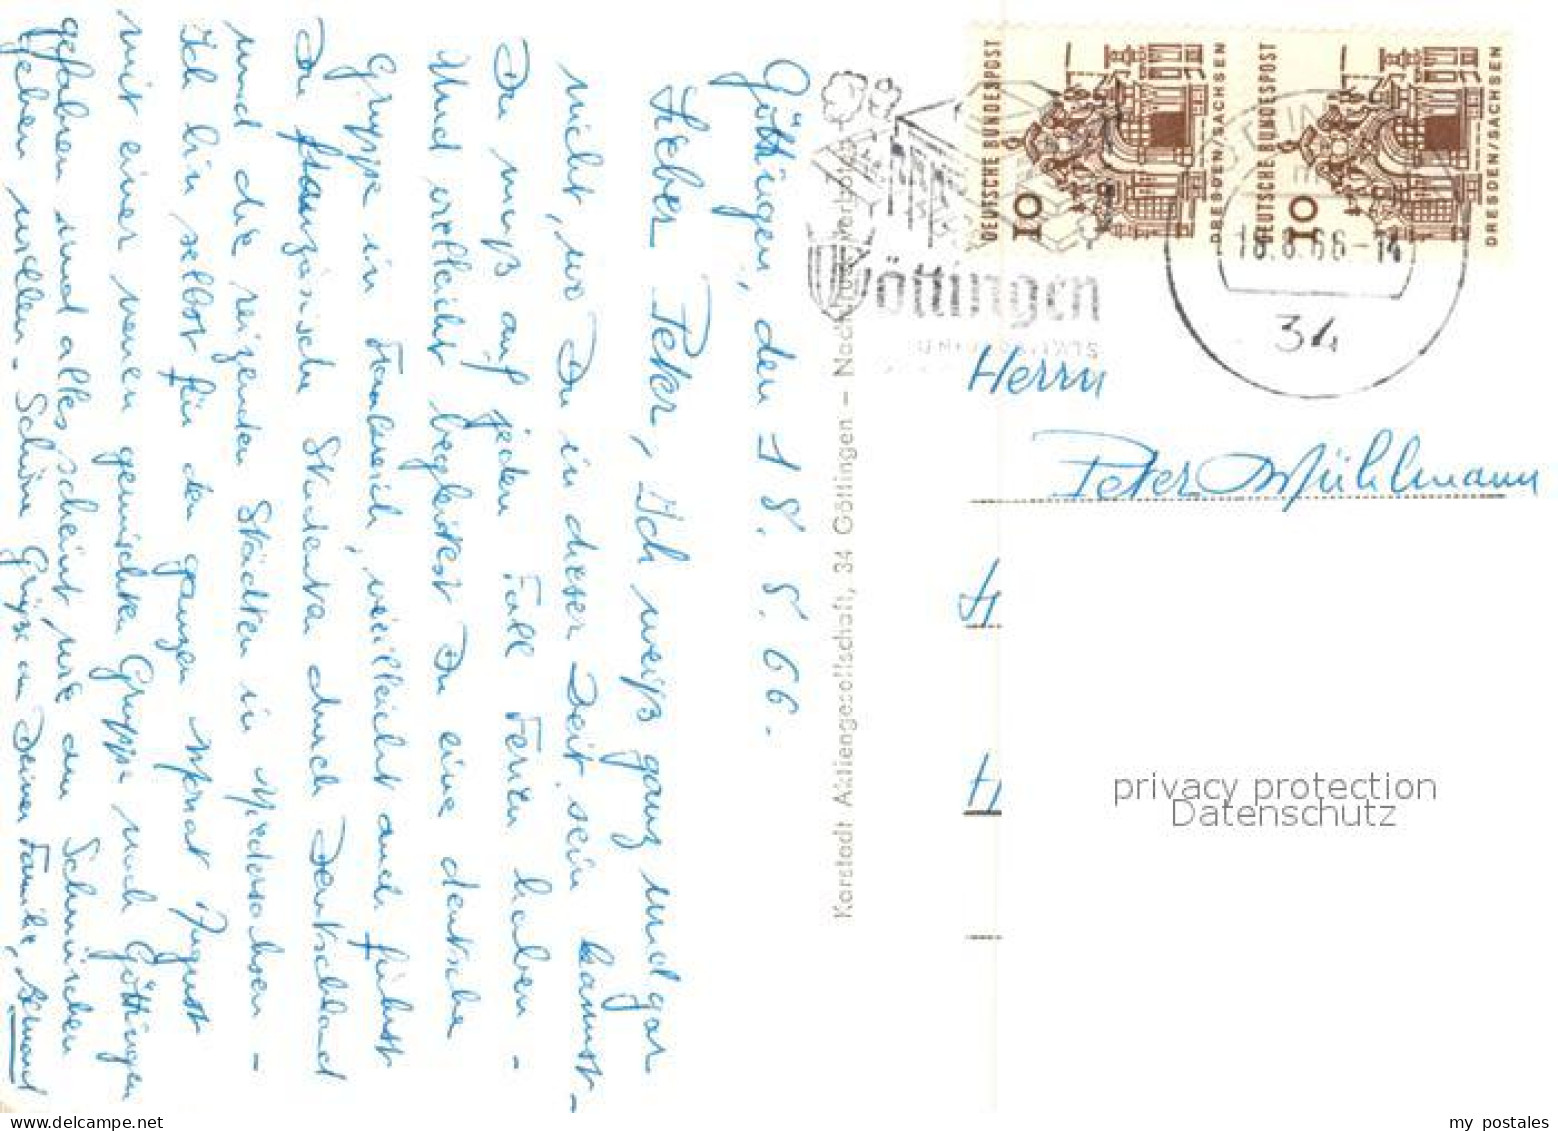 Göttingen, den 18.8.66.
Lieber Peter, Ich weiß ganz und gar
nicht, wo Du in dieser Zeit sein kannst -
Du mußt auf jeden Fall Ferien haben -
Und vielleicht begleitest Du eine deutsche
Gruppe in Frankreich, vielleicht auch führst
Du französische Studenten durch Deutschland
und die reizenden Städten in Niedersachsen -
Ich bin selbst für den ganzen Monat August
mit einer neuen gemischten Gruppe nach Göttingen
gefahren und alles scheint, wie am Schnürchen
gehen wollen. Schöne Grüße an Deiner Familie,
Karstadt Aktiengesellschaft, 34 Göttingen – Nachdruck verboten
DEUTSCHE BUNDESPOST
10
DRESDEN/SACHSEN
DEUTSCHE BUNDESPOST
10
DRESDEN/SACHSEN
Göttingen
18.8.66-14
34
Herrn
Peter Mühlmann
privacy protection
Datenschutz
my postales